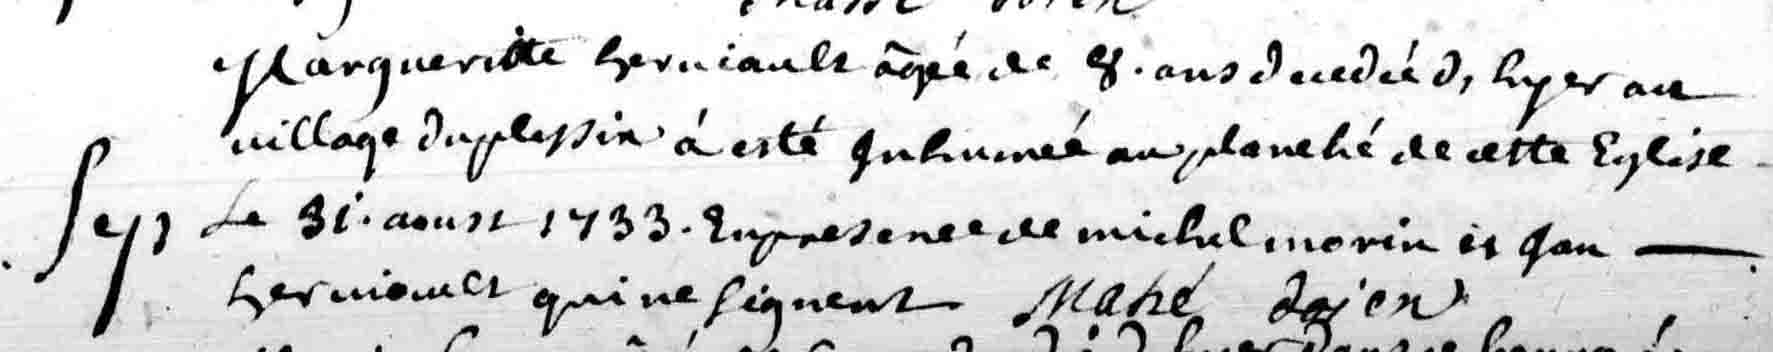 Margueritte herviault âgée de 8. ans decedée d, hyer au
village du plessix á esté Inhumée au planché de cette Eglise
Sep Le 31. aoust 1733. En presence de michel morin et Jan
herviault qui ne signent Mahé doien